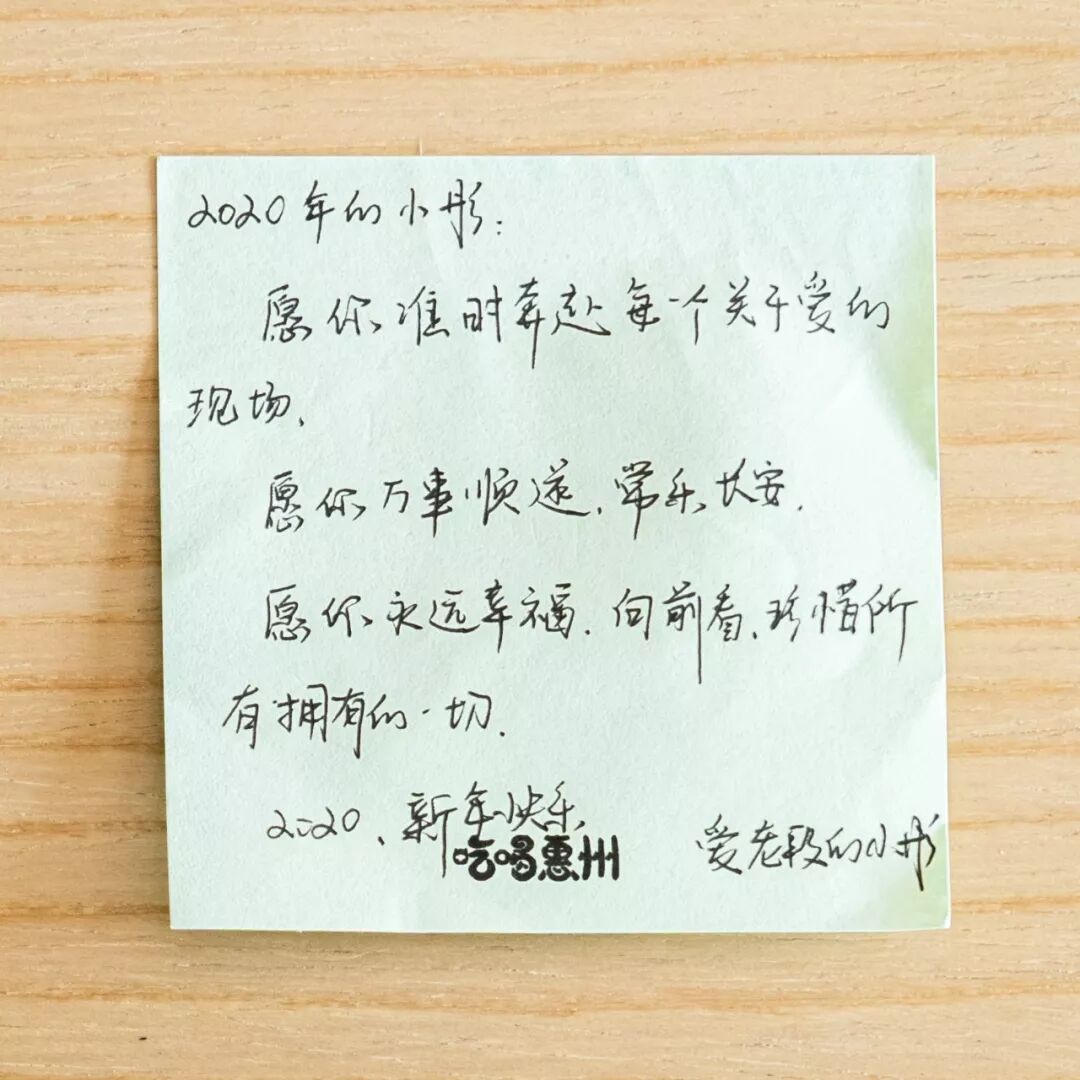 2020年的小彤:
愿你准时奔赴每一个关于爱的
现场、
愿你万事顺遂、常乐长安、
愿你永远幸福、向前看、珍惜所
有拥有的一切、
2020、新年快乐
吃喝惠州
爱老段的小彤